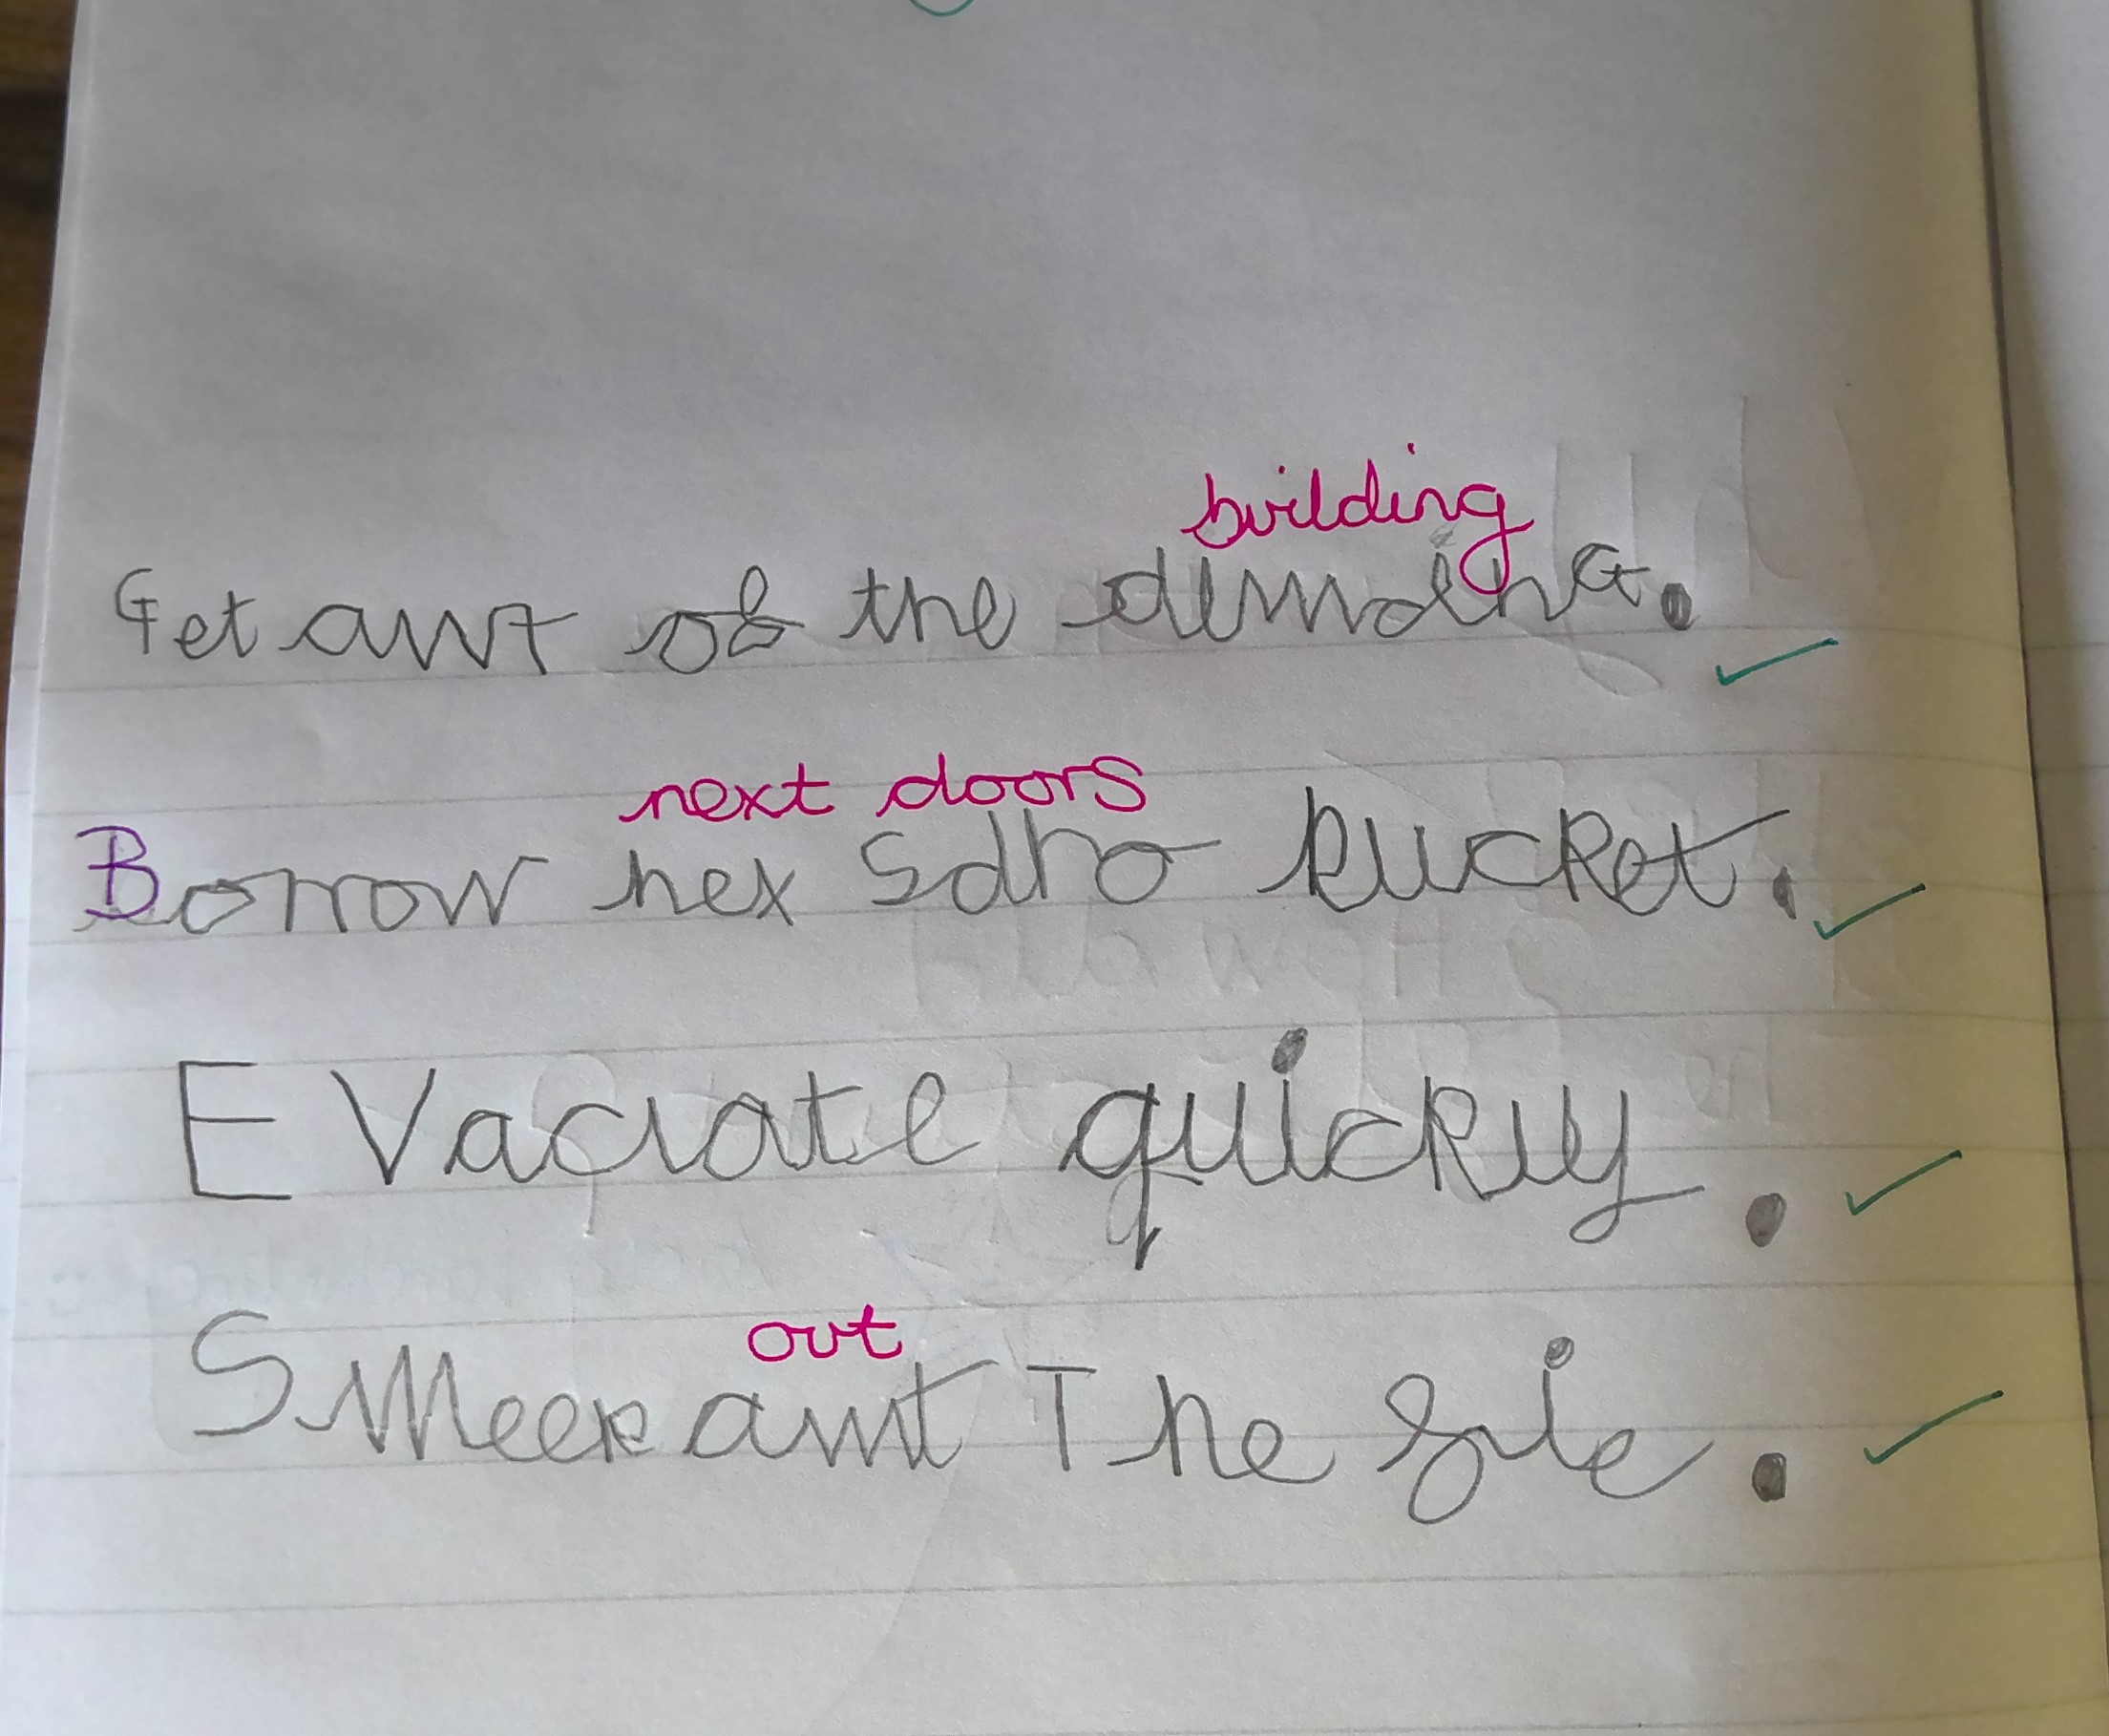 building
Get awt of the dimding.
next doors
Borrow nex Sdro bucket.
EVacrate quickly.
out
SMeep awt The fie.